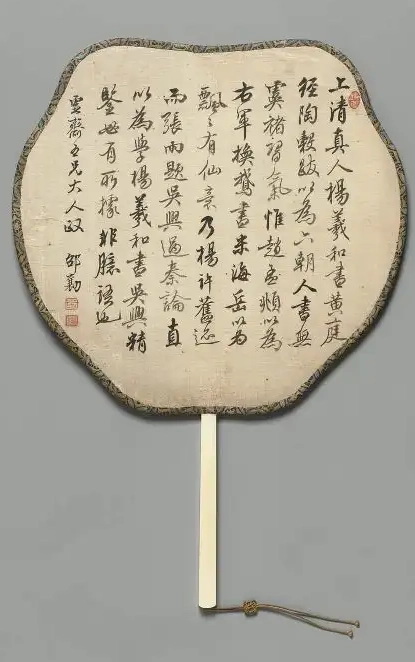 上清真人楊羲和書黃庭
經陶穀跋以為六朝人書無
虞褚習氣惟趙孟頫以為
右軍換鵝書米海岳以為
飄〻有仙意乃楊許舊迹
而張雨題吳興過秦論直
以為學楊羲和書吳興精
鑒必有所據非臆語也
雲齋五兄大人政 邵勳